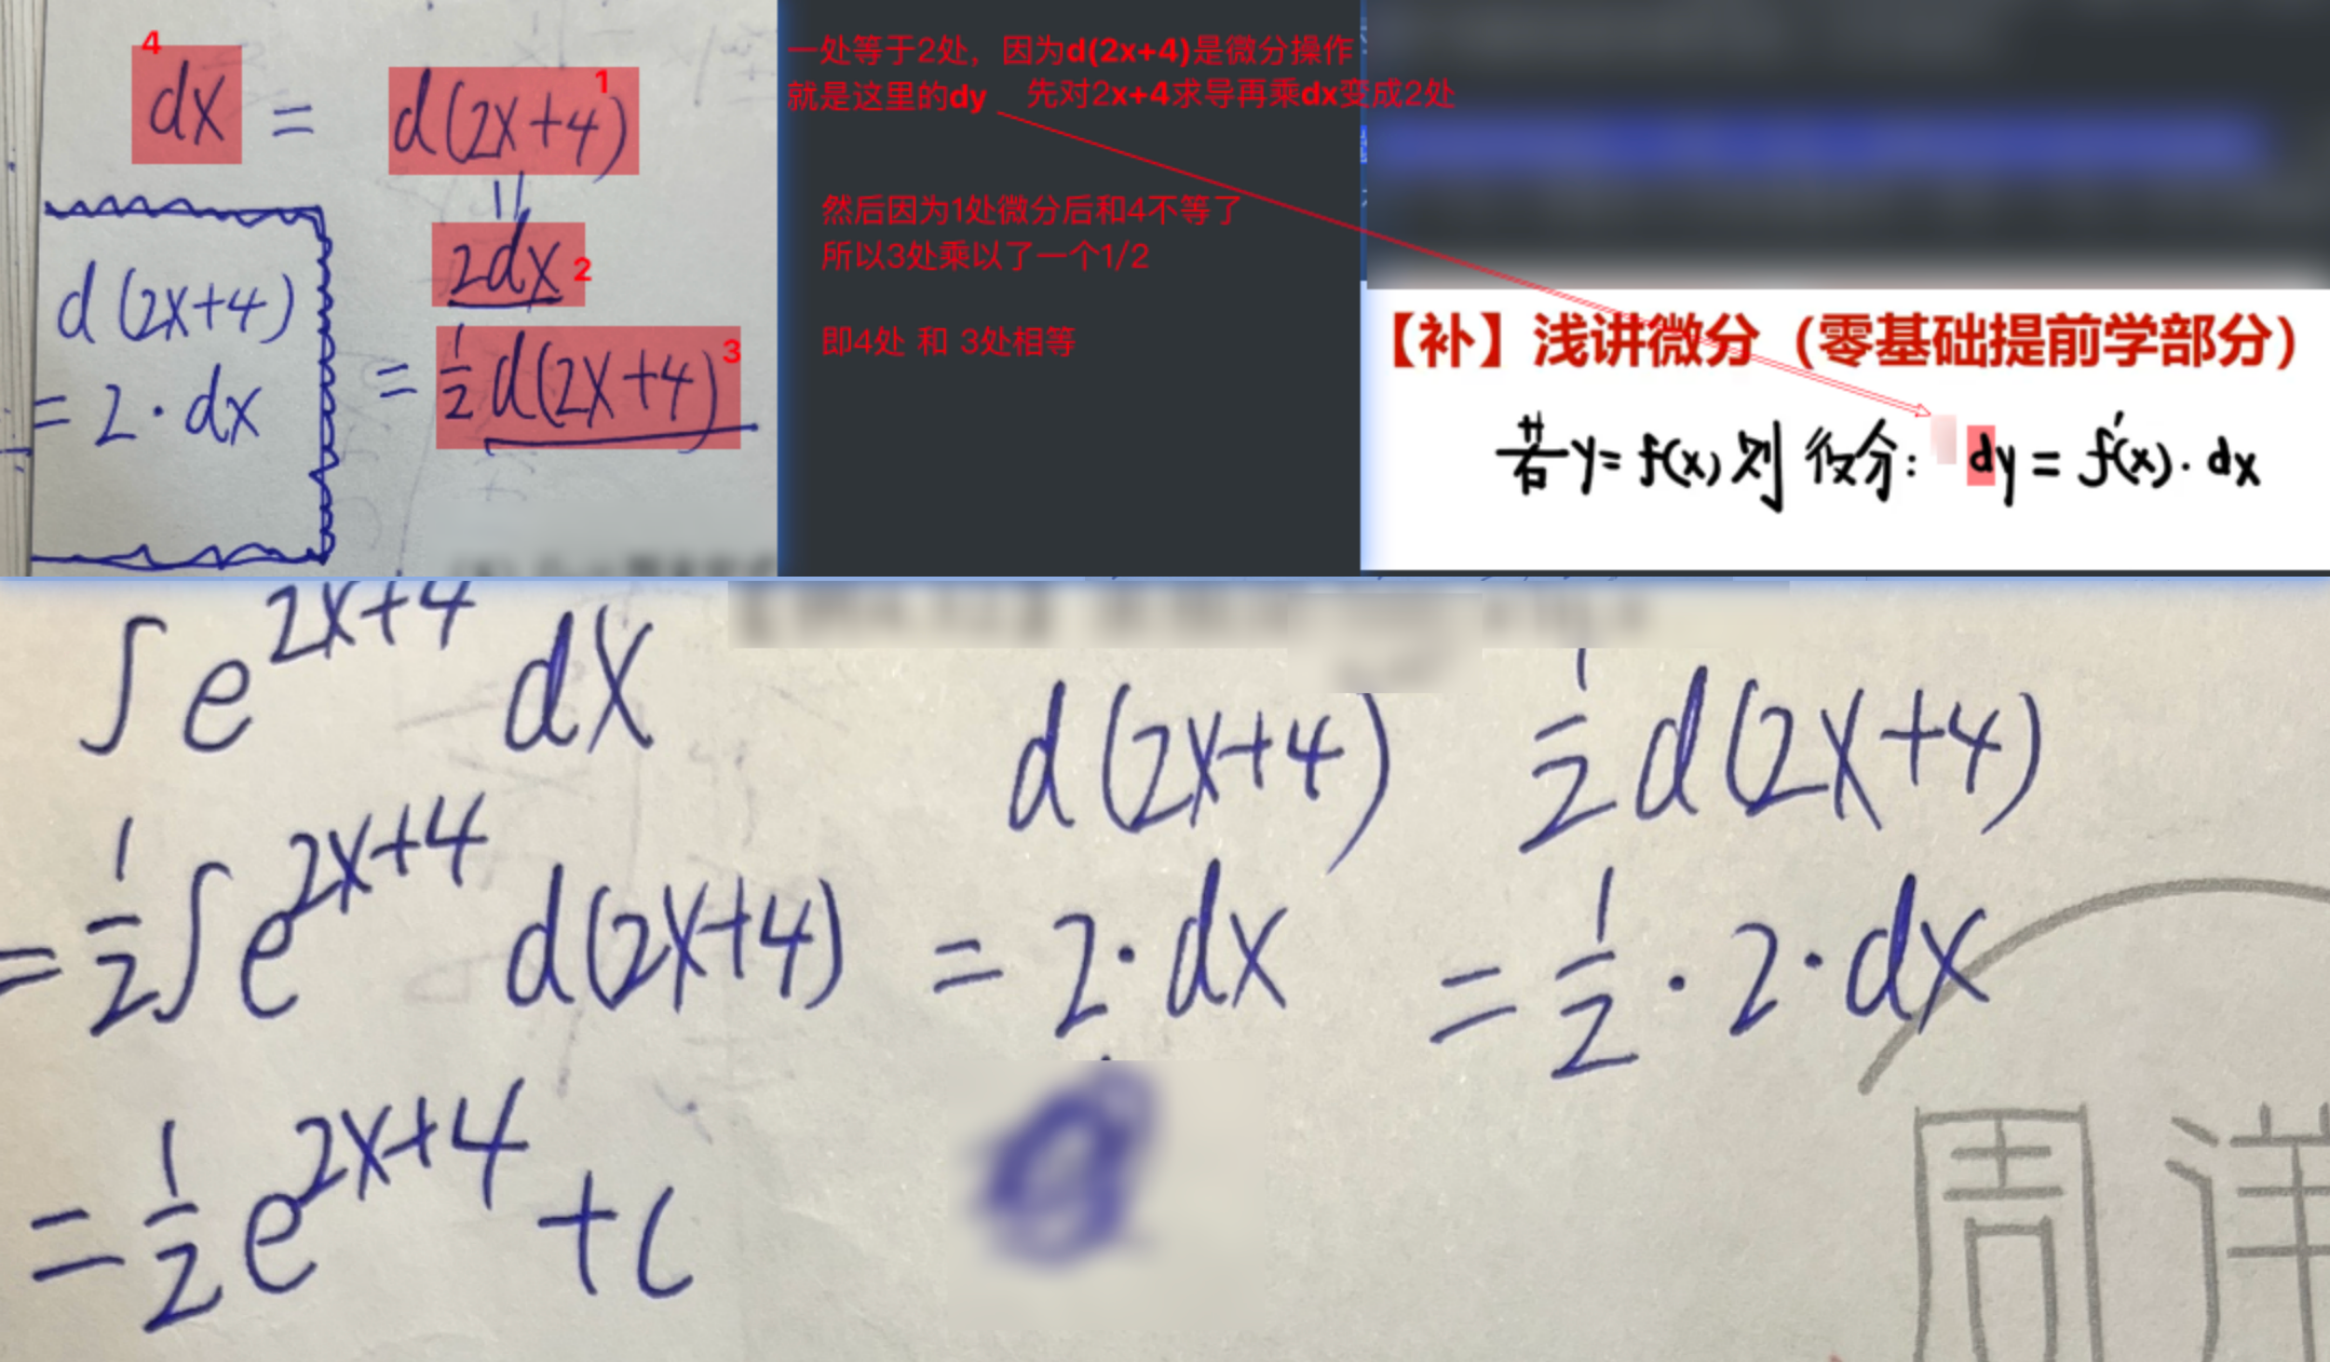 4
dx = d(2x+4) 1
=
2dx 2
= 1/2 d(2x+4) 3
d(2x+4)
= 2·dx
一处等于2处，因为d(2x+4)是微分操作
就是这里的dy 先对2x+4求导再乘dx变成2处
然后因为1处微分后和4不等了
所以3处乘以了一个1/2
即4处 和 3处相等
【补】浅讲微分（零基础提前学部分）
若y=f(x)则 微分: dy = f'(x)·dx
∫e^{2x+4} dx
= 1/2 ∫e^{2x+4} d(2x+4)
= 1/2 e^{2x+4} + c
d(2x+4)
= 2·dx
1/2 d(2x+4)
= 1/2·2·dx
周洋